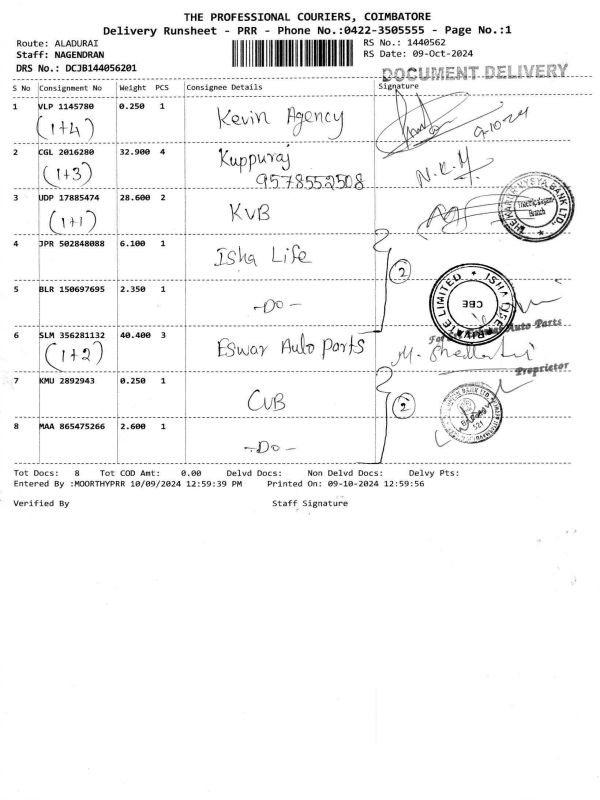 THE PROFESSIONAL COURIERS, COIMBATORE
Delivery Runsheet - PRR - Phone No.:0422-3505555 - Page No.:1
Route: ALADURAI
RS No.: 1440562
Staff: NAGENDRAN
RS Date: 09-Oct-2024
DRS No.: DCJB144056201
DOCUMENT DELIVERY
S No Consignment No Weight PCS Consignee Details Signature
1 VLP 1145780 0.250 1 Kevin Agency
(1+4) 9-10-24
2 CGL 2016280 32.900 4 Kuppuraj
(1+3) 9578552508 N.K.M
3 UDP 17885474 28.600 2 KVB
(1+1)
THE KARUR VYSYA BANK LTD.,
Branch
4 JPR 502848088 6.100 1 Isha Life
(2)
5 BLR 150697695 2.350 1 -Do-
ISHA LIFE PRIVATE LIMITED
CBE
6 SLM 356281132 40.400 3 Eswar Auto Parts
(1+2)
For Auto Parts
Proprietor
7 KMU 2892943 0.250 1 CUB
(2)
8 MAA 865475266 2.600 1 -Do-
Tot Docs: 8 Tot COD Amt: 0.00 Delvd Docs: Non Delvd Docs: Delvy Pts:
Entered By :MOORTHYPRR 10/09/2024 12:59:39 PM Printed On: 09-10-2024 12:59:56
Verified By Staff Signature